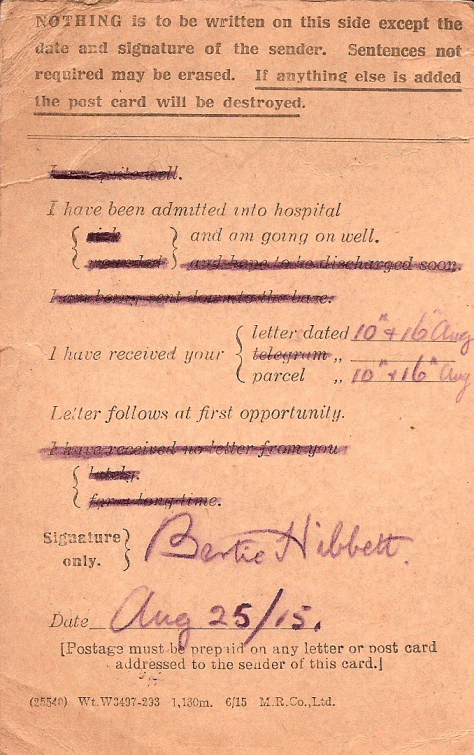 NOTHING is to be written on this side except the
date and signature of the sender. Sentences not
required may be erased. If anything else is added
the post card will be destroyed.
I am quite well.
I have been admitted into hospital
sick
and am going on well.
wounded
and hope to be discharged soon.
I am being sent down to the base.
I have received your
letter dated 10" & 16" Aug
telegram „
parcel „ 10" & 16" Aug
Letter follows at first opportunity.
I have received no letter from you
lately.
for a long time.
Signature
only.
Bertie Hibbett.
Date Aug 25/15.
[Postage must be prepaid on any letter or post card
addressed to the sender of this card.]
(25540) Wt.W3497-293 1,130m. 6/15 M.R.Co.,Ltd.